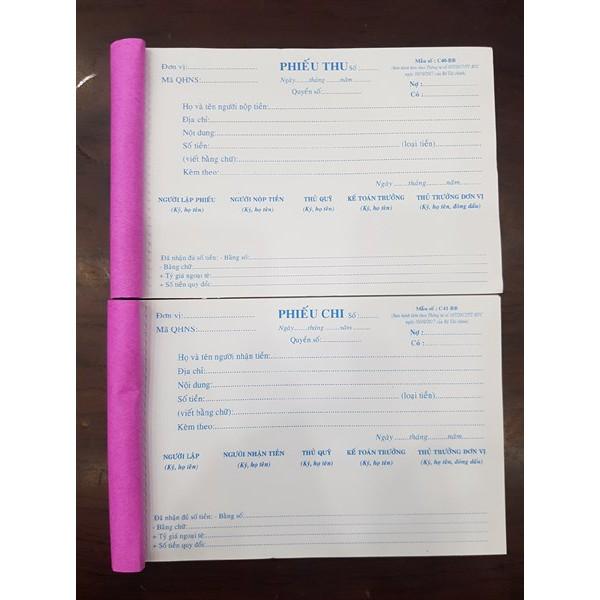 Đơn vị:
PHIẾU THU Số :
Mẫu số : C40-BB
(Ban hành kèm theo Thông tư số 107/2017/TT-BTC
ngày 10/10/2017 của Bộ Tài chính)
Mã QHNS:
Ngày......tháng......năm
Nợ :
Quyển số:
Có :
Họ và tên người nộp tiền:
Địa chỉ:
Nội dung:
Số tiền: (loại tiền)
(viết bằng chữ):
Kèm theo:
Ngày......tháng......năm
NGƯỜI LẬP PHIẾU NGƯỜI NỘP TIỀN THỦ QUỸ KẾ TOÁN TRƯỞNG THỦ TRƯỞNG ĐƠN VỊ
(Ký, họ tên) (Ký, họ tên) (Ký, họ tên) (Ký, họ tên) (Ký, họ tên, đóng dấu)
Đã nhận đủ số tiền: - Bằng số:
- Bằng chữ:
+ Tỷ giá ngoại tệ:
+ Số tiền quy đổi:
Đơn vị:
PHIẾU CHI Số :
Mẫu số : C41-BB
(Ban hành kèm theo Thông tư số 107/2017/TT-BTC
ngày 10/10/2017 của Bộ Tài chính)
Mã QHNS:
Ngày......tháng......năm
Nợ :
Quyển số:
Có :
Họ và tên người nhận tiền:
Địa chỉ:
Nội dung:
Số tiền: (loại tiền)
(viết bằng chữ):
Kèm theo:
Ngày......tháng......năm
NGƯỜI LẬP NGƯỜI NHẬN TIỀN THỦ QUỸ KẾ TOÁN TRƯỞNG THỦ TRƯỞNG ĐƠN VỊ
(Ký, họ tên) (Ký, họ tên) (Ký, họ tên) (Ký, họ tên) (Ký, họ tên, đóng dấu)
Đã nhận đủ số tiền: - Bằng số:
- Bằng chữ:
+ Tỷ giá ngoại tệ:
+ Số tiền quy đổi: